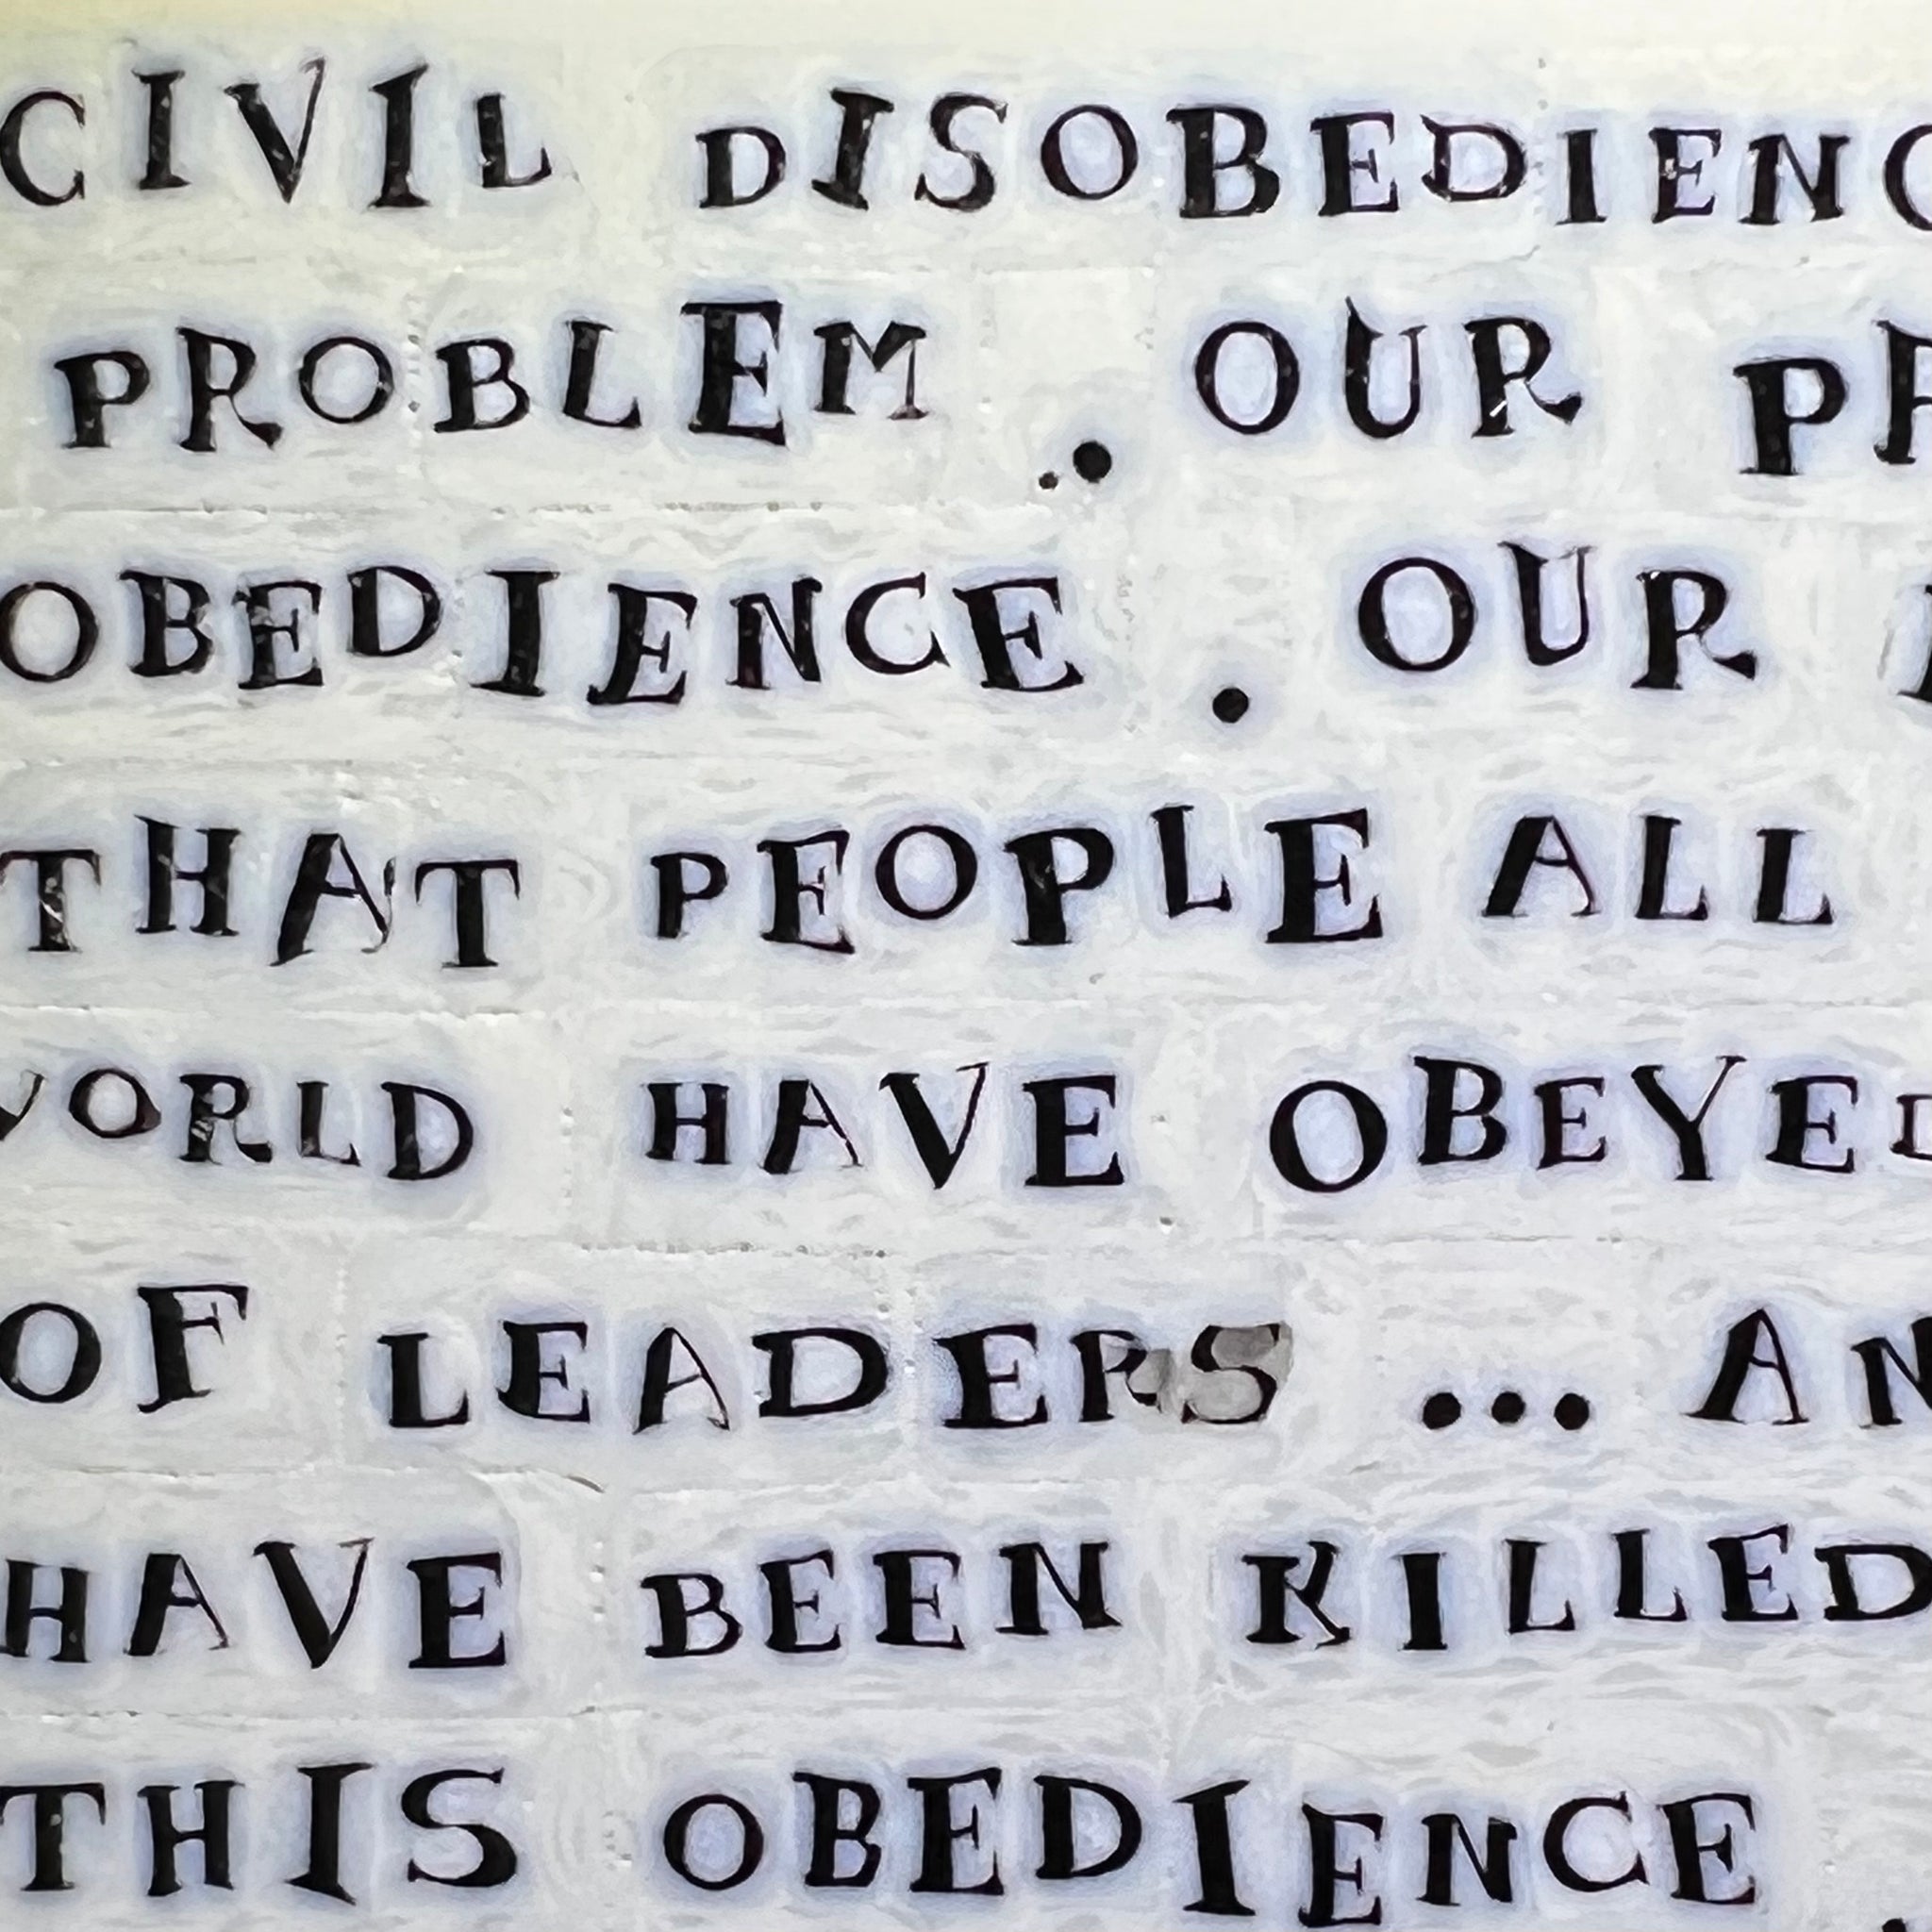 CIVIL DISOBEDIENC
PROBLEM . OUR PR
OBEDIENCE . OUR
THAT PEOPLE ALL
WORLD HAVE OBEYED
OF LEADERS ... AN
HAVE BEEN KILLED
THIS OBEDIENCE .